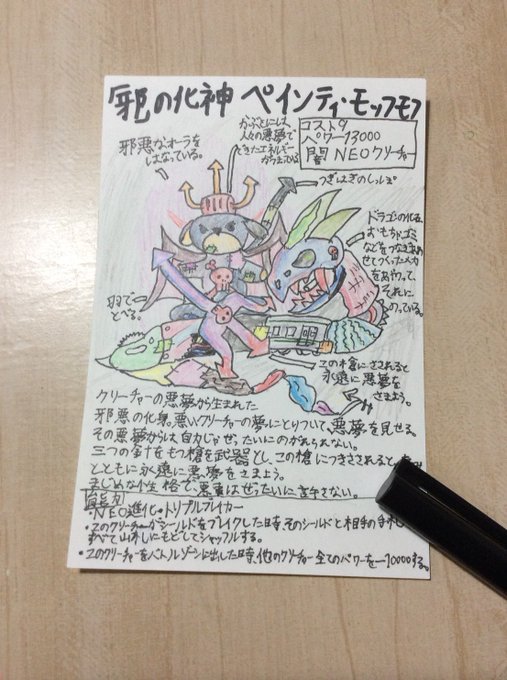 邪の化神 ペインティ・モッフモフ
コスト9
パワー13000
闇 NEOクリーチャー
邪悪なオーラを
はなっている。
かぶとには、
人々の悪夢で
できたエネルギー
がつまっている
つぎはぎのしっぽ
ドラゴンの化石、
おもちゃ、ゴミ
などをつなぎあわ
せてつくったメカ
をあやつって、
それに
のっている。
羽で
とべる。
この槍にさされると
永遠に悪夢を
さまよう。
クリーチャーの悪夢から生まれた
邪悪の化身。悪いクリーチャーの夢にとりついて、悪夢を見せる。
その悪夢からは自力じゃぜったいにのがれられない。
三つの針をもつ槍を武器とし、この槍につきさされると、
とともに永遠に悪夢をさまよう。
まじめな性格で、悪者はぜったいに許さない。
能力
・NEO進化・トリプルブレイカー
・このクリーチャーがシールドをブレイクした時、そのシールドと相手の手札
すべて山札にもどしてシャッフルする。
・このクリーチャーをバトルゾーンに出した時、他のクリーチャー全てのパワーを−10000する。